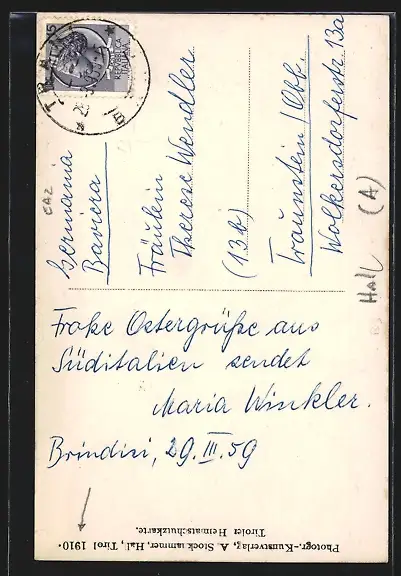 Germania
Baviera
Fräulein
Therese Wendler
(13b)
Traunstein/Obb.
Wolkersdorferstr. 13a
Hall (A)
Frohe Ostergrüße aus
Süditalien sendet
Maria Winkler.
Brindisi, 29. III. 59
Photogr.-Kunstverlag, A. Stockhammer, Hall, Tirol 1910.
Tiroler Heimatschutzkarte.
REPUBBLICA
ITALIANA